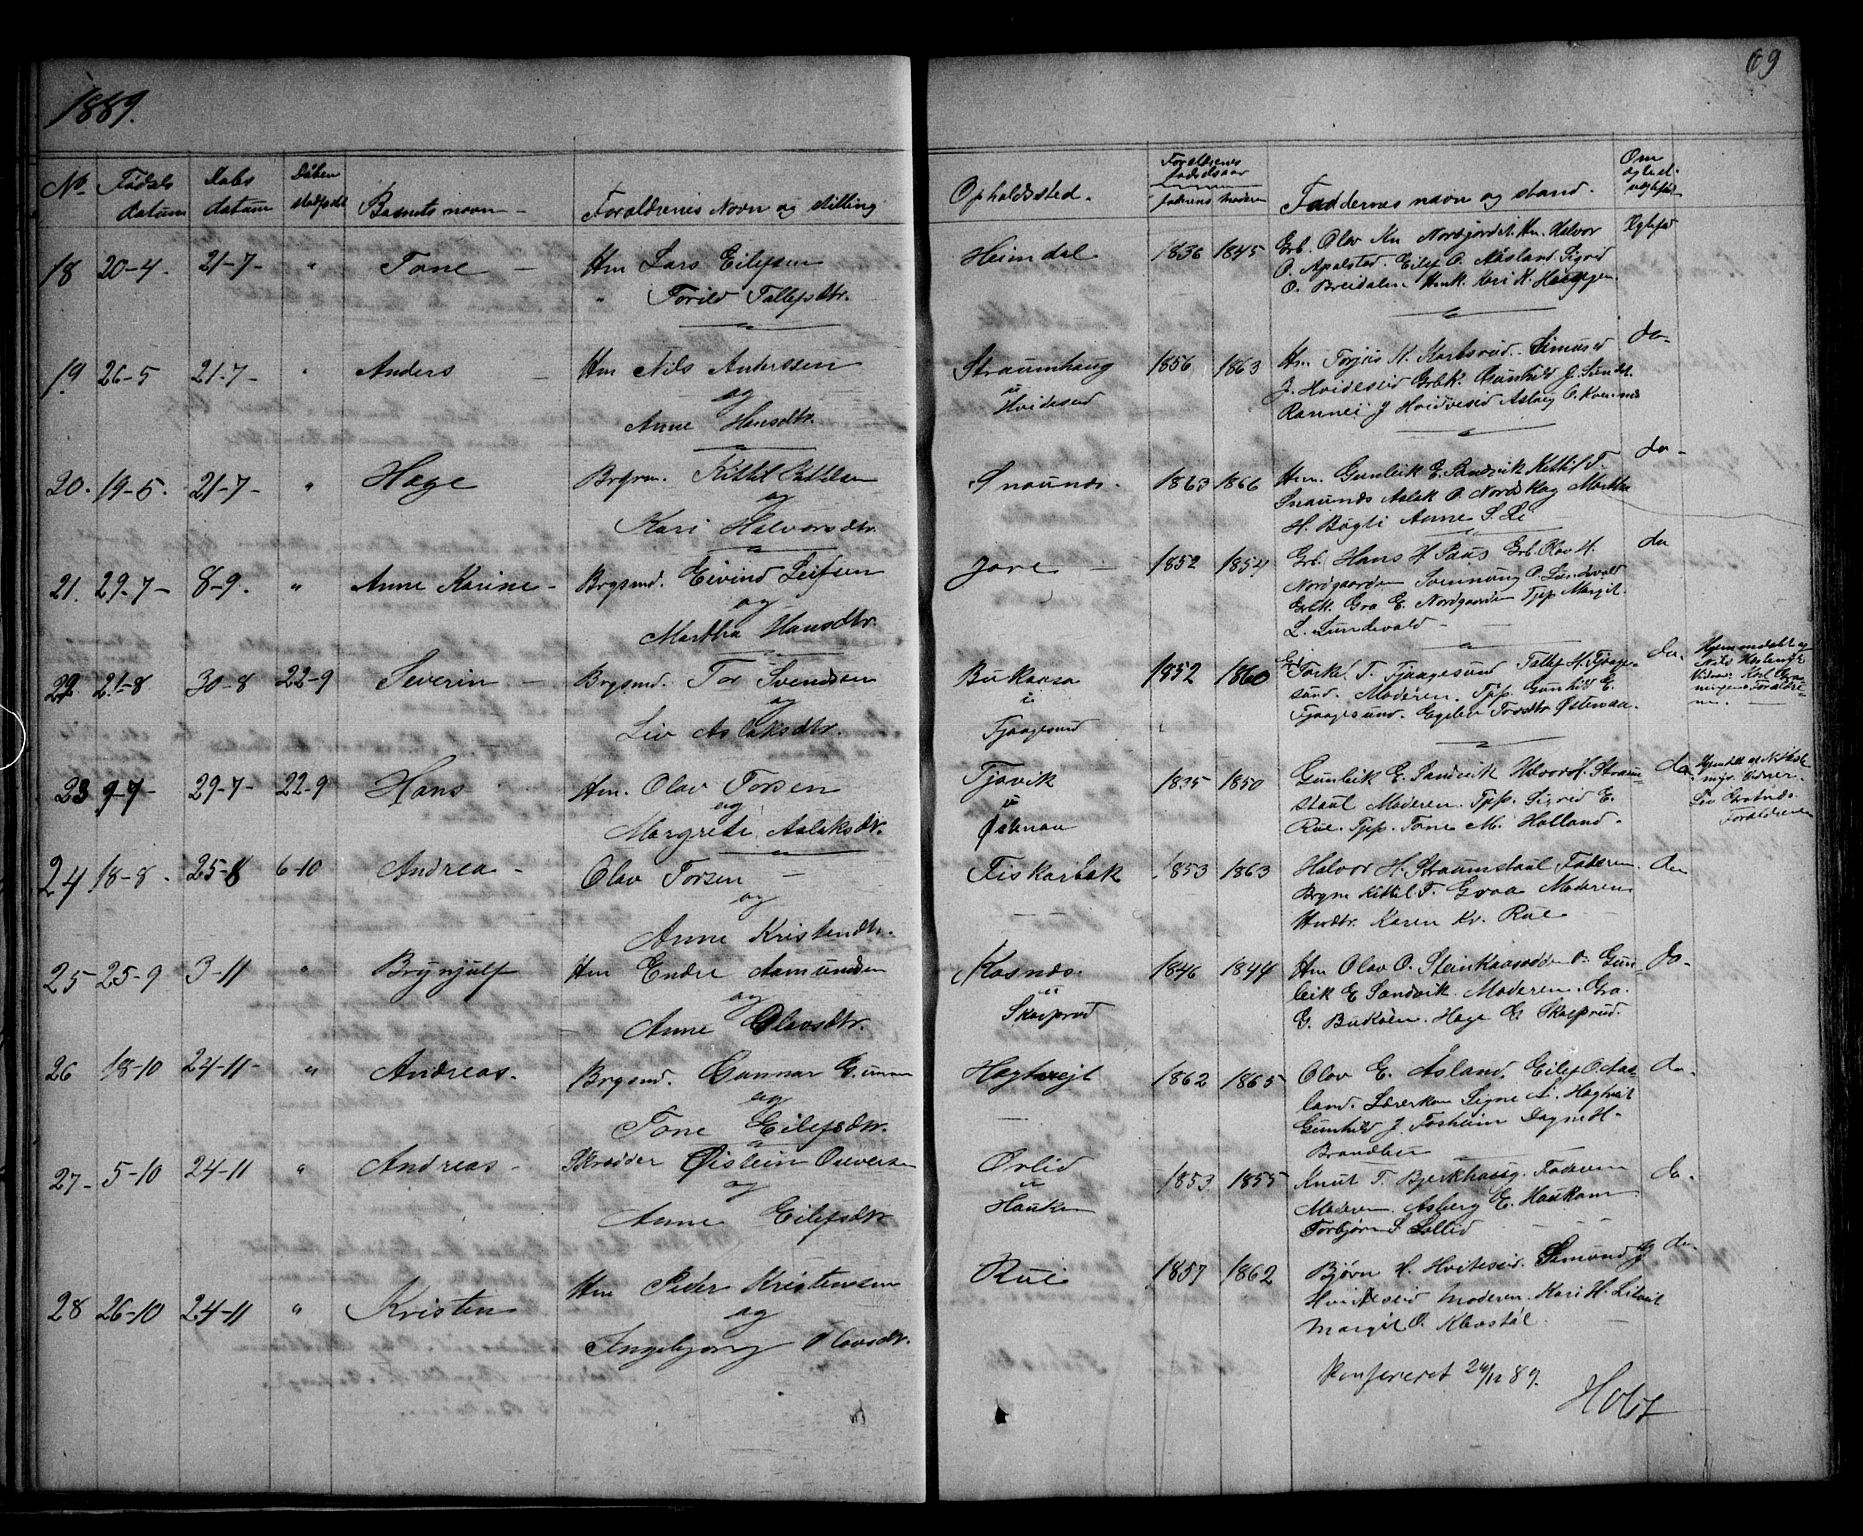 1889.
69
No
Fødsels datum
Dabs datum
Dåben stadfæstet
Barnets navn
Forældrenes Navn og stilling
Opholdssted.
Forældrenes fødselsaar
faderens moderen
Faddernes navn og stand.
Om ægte el. uægtefød
18 20-4. 21-7- " Tone - Hm Lars Eilefsen
" Torild Tallefsdtr.
Heimdal 1836 1845
Grb. Olav Kn Nordgjordet Hm. Halvor
O. Apalstad. Eilef O. Aasland Sigrid
O. Breidalen Hmk. Kari K. Haugen
Ægtefød
19 26-5 21-7- " Anders - Hm Nils Anderssen
og
Anne Hansdtr.
Straumhaug
u
Hvideseid
1856 1863
Hm. Torjus N. Kartsrud. Simund
J. Hvideseid Grbk. Gunhild G. Sundt
Rannei J Hvidveseid Aslaug O. Kvennes
do-
20. 19-5. 21-7- " Hage Brgrm. Kittil Kittilsen
og
Kari Halvorsdtr.
Snaunds. 1863 1866
Hm. Gunleik E. Sandvik Kittil T.
Snaunds Aslak O. Nordskog Martha
H. Bøgli Anne S. Li
do-
21. 29-7- 8-9. " Anne Karine - Brgsmd. Eivind Leifsen
og
Martha Hansdtr.
Jore - 1852 1854
Grb. Hans H. Saus Grb. Olav H.
Nordgaarden Svennung O. Lundevald
Grbk. Gro E. Nordgaarden Tjp. Margit
L. Lundevald -
do
22 21-8 30-8 22-9 Severin - Brgsmd. Tor Svendsen
og
Liv Aslaksdtr.
Bukaasa
u
Fjaagesund
1852 1860
Torkel T. Fjaagesund Tallef H. Fjaage-
sund. Moderen. Tpp. Gunhild E.
Fjaagesund. Egelev Torsdtr Østenaa.
do-
Hjemmedøbt af
Nils
Forældre-
ne.
23 9-7- 29-7- 22-9 Hans Hm. Olav Torsen
og
Margrete Aslaksdtr.
Tjovik
u
Østenaa
1835 1850
Gunleik E. Sandvik Halvor H. Straum-
staul Moderen. Tpp. Sigrid E.
Rue. Tjp. Tone M. Holland.
do
Forældrene
24 18-8. 25-8 6-10 Andrea - Olav Torsen -
og
Anne Kristendtr.
Fiskarbak 1853 1863
Halvor H. Straumstaul Faderen
Brgm Kittel T. Graa Moderen
Hmdtr. Karen Kr. Rue
do
25 25-9 3-11 " Brynjulf Hm Endre Aamundsen
og
Anne Olavsdtr.
Kasnes.
u
Skarprud
1846 1844
Hm Olav O. Steinkaasa Gun-
leik E Sandvik. Moderen. Gro
G. Bukåsen. Hage G. Skarprud.
do-
26 18-10 24-11- " Andreas. Brgsmd. Gunnar Gunnar
og
Tone Eilefsdtr.
Hagtvejt 1862 1865
Olav E. Åsland. Eilef O. Aas-
land. Lærerkone Signe A. Hagtveit
Gunhild J. Fosheim Dagne H.
Brandlien
do.
27- 5-10 24-11 " Andreas - Skredder Øistein Oliversen
og
Anne Eilefsdtr
Ørlid
u
Haukom
1853. 1855
Knut T. Bjerkhaug. Faderen
Moderen. Asberg E. Haukom
Torbjørn S. Lillid
do.
28 26-10 24-11 " Kristen Hm Peder Kristensen
og
Ingebjørg Olavsdtr.
Rui 1857 1862
Bjørn H. Hviteseid. Simund J
Hviteseid Moderen. Kari H. Litveit
Margit O. Klevstøl.
do.
Konfereret 24/12 89.
Holst